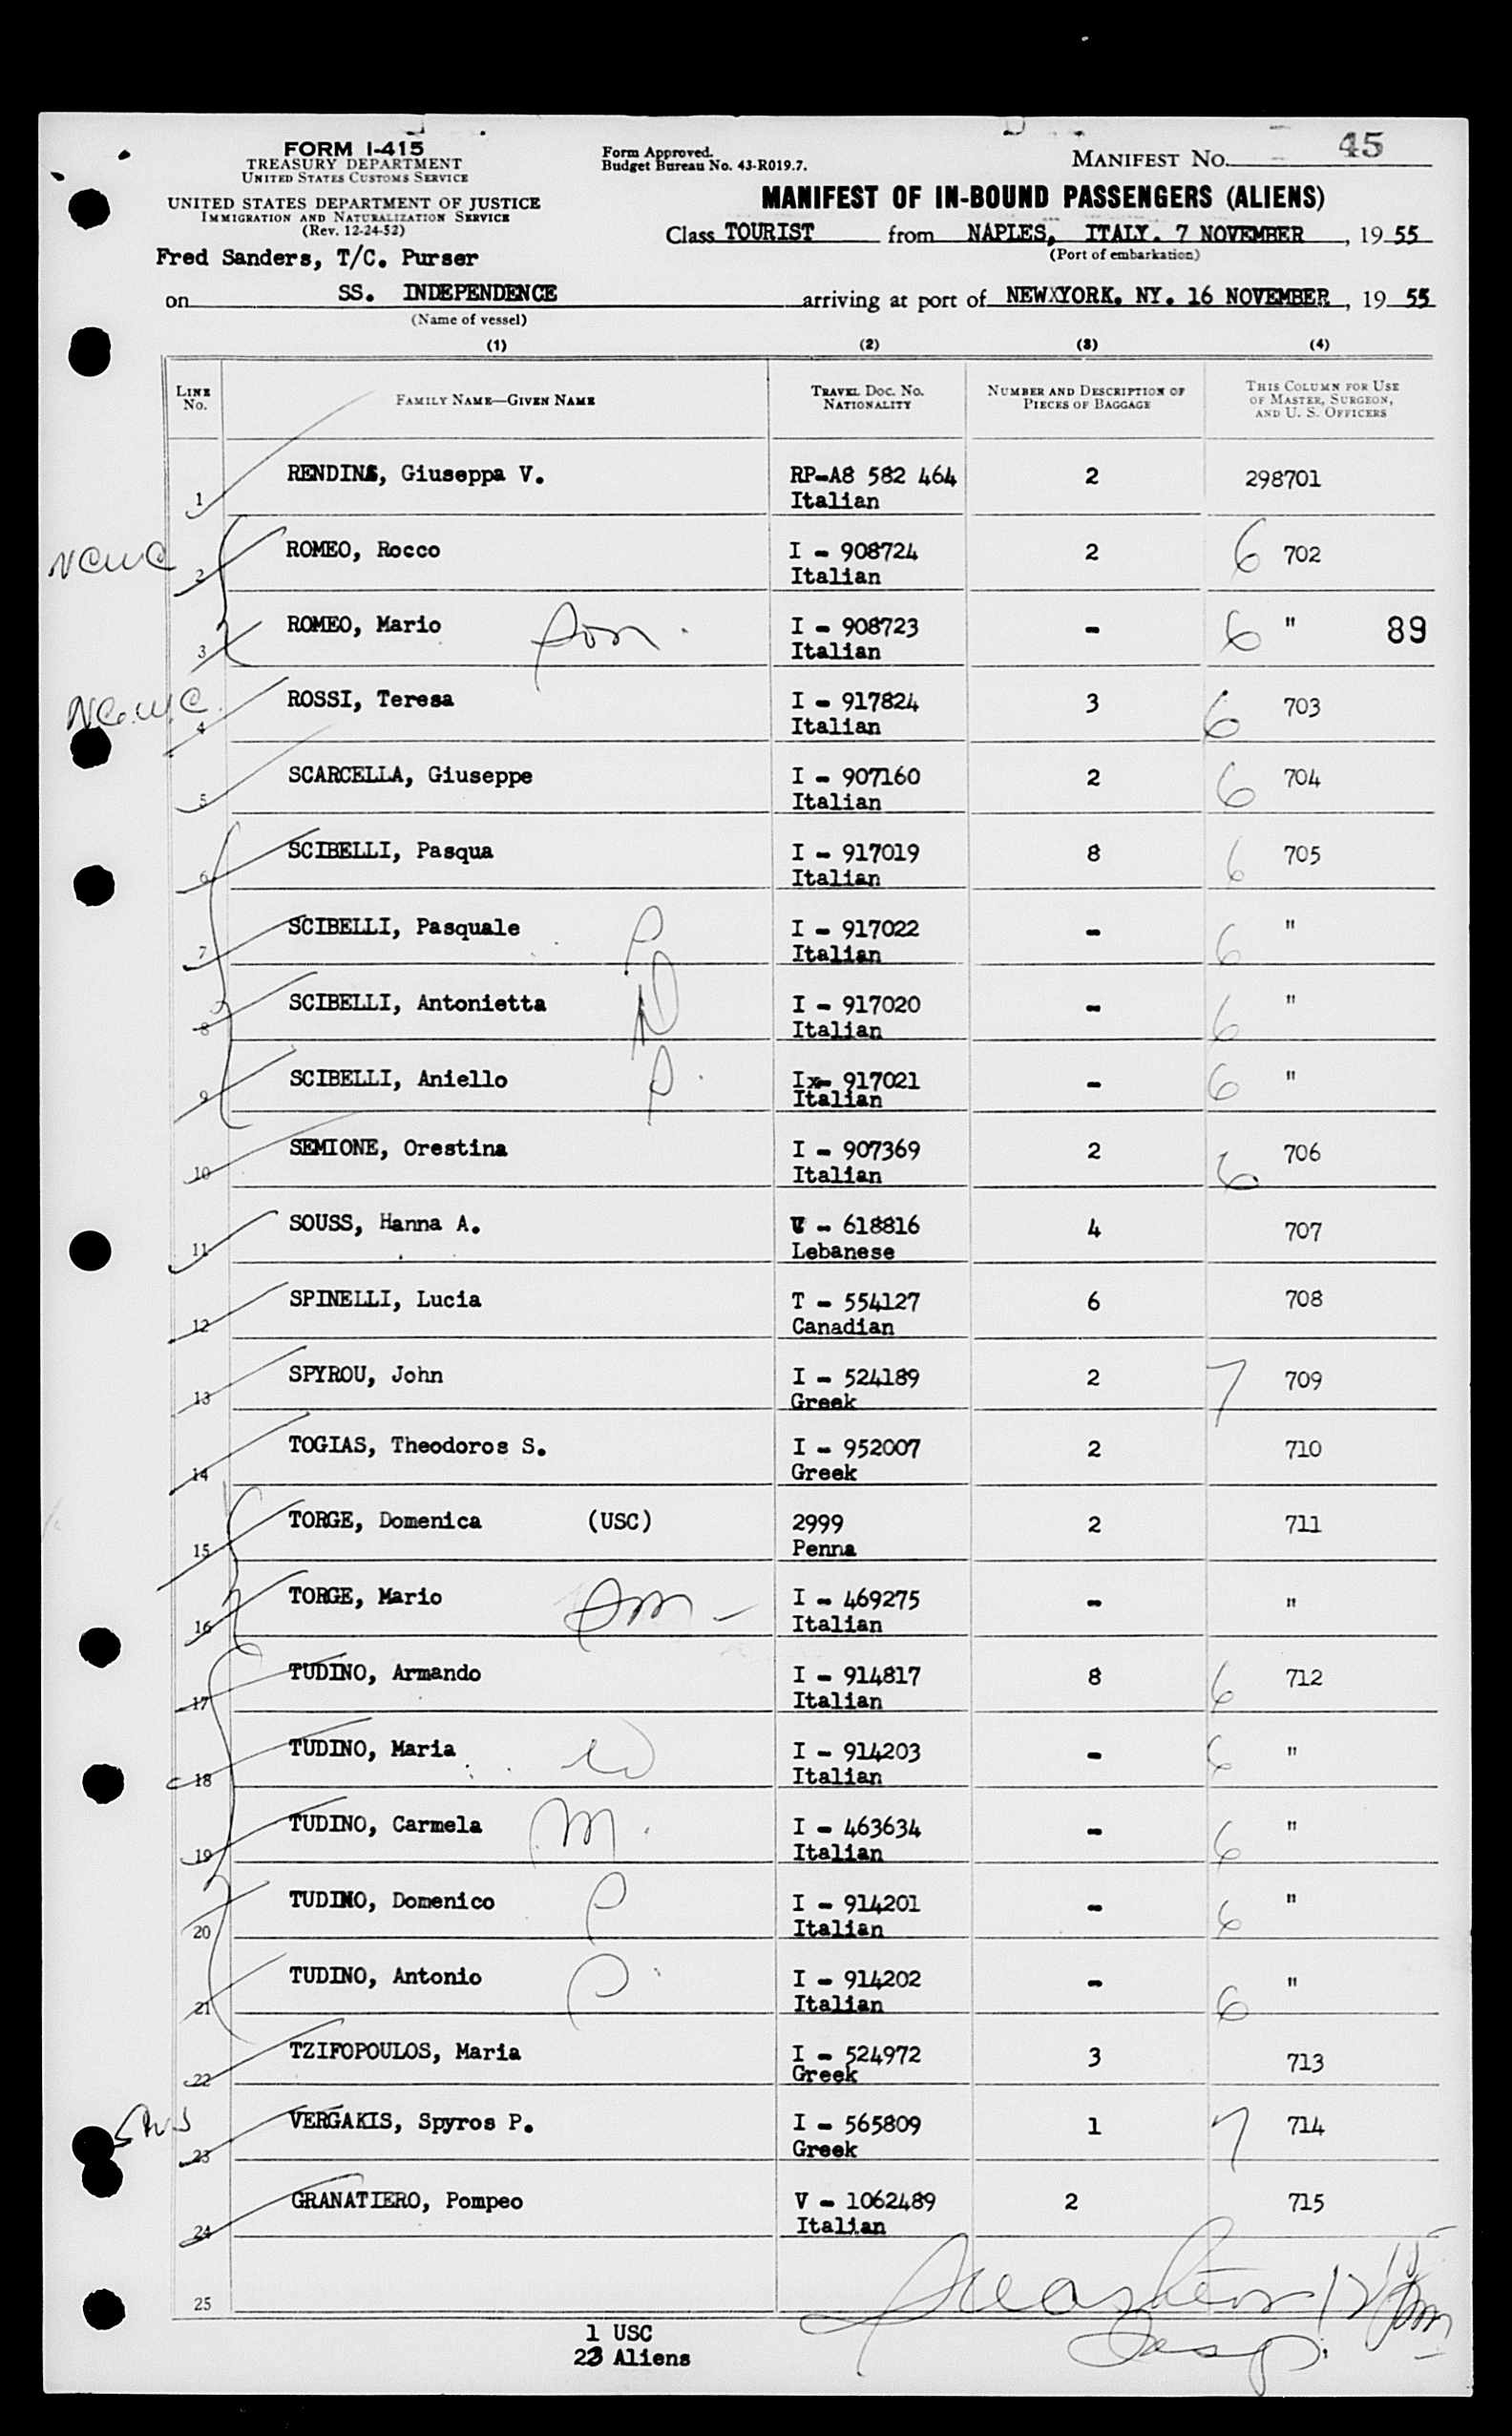 FORM I-415
TREASURY DEPARTMENT
UNITED STATES CUSTOMS SERVICE
UNITED STATES DEPARTMENT OF JUSTICE
IMMIGRATION AND NATURALIZATION SERVICE
(Rev. 12-24-52)
Form Approved.
Budget Bureau No. 43-R019.7.
MANIFEST NO. 45
MANIFEST OF IN-BOUND PASSENGERS (ALIENS)
Class TOURIST from NAPLES, ITALY. 7 NOVEMBER, 19 55
(Port of embarkation)
Fred Sanders, T/C. Purser
on SS. INDEPENDENCE arriving at port of NEWXYORK. NY. 16 NOVEMBER, 19 55
(Name of vessel)
(1) (2) (3) (4)
LINE No. FAMILY NAME—GIVEN NAME TRAVEL DOC. NO. NATIONALITY NUMBER AND DESCRIPTION OF PIECES OF BAGGAGE THIS COLUMN FOR USE OF MASTER, SURGEON, AND U. S. OFFICERS
1 RENDINA, Giuseppa V. RP-A8 582 464 2 298701
Italian
NCWC 2 ROMEO, Rocco I - 908724 2 6 702
Italian
3 ROMEO, Mario son. I - 908723 - 6 " 89
Italian
N.C.W.C. 4 ROSSI, Teresa I - 917824 3 6 703
Italian
5 SCARCELLA, Giuseppe I - 907160 2 6 704
Italian
6 SCIBELLI, Pasqua I - 917019 8 6 705
Italian
7 SCIBELLI, Pasquale I - 917022 - 6 "
Italian
8 SCIBELLI, Antonietta I - 917020 - 6 "
Italian
9 SCIBELLI, Aniello I x- 917021 - 6 "
Italian
10 SEMIONE, Orestina I - 907369 2 6 706
Italian
11 SOUSS, Hanna A. V - 618816 4 707
Lebanese
12 SPINELLI, Lucia T - 554127 6 708
Canadian
13 SPYROU, John I - 524189 2 7 709
Greek
14 TOGIAS, Theodoros S. I - 952007 2 710
Greek
15 TORGE, Domenica (USC) 2999 2 711
Penna
16 TORGE, Mario I - 469275 - "
Italian
17 TUDINO, Armando I - 914817 8 6 712
Italian
18 TUDINO, Maria W I - 914203 - 6 "
Italian
19 TUDINO, Carmela M. I - 463634 - 6 "
Italian
20 TUDINO, Domenico I - 914201 - 6 "
Italian
21 TUDINO, Antonio I - 914202 - 6 "
Italian
22 TZIFOPOULOS, Maria I - 524972 3 713
Greek
23 VERGAKIS, Spyros P. I - 565809 1 7 714
Greek
24 GRANATIERO, Pompeo V - 1062489 2 715
Italian
25
1 USC
23 Aliens